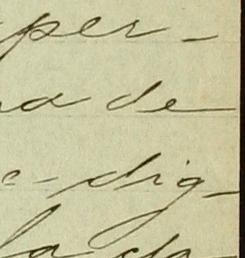 per-
a de
e-dig-
la da